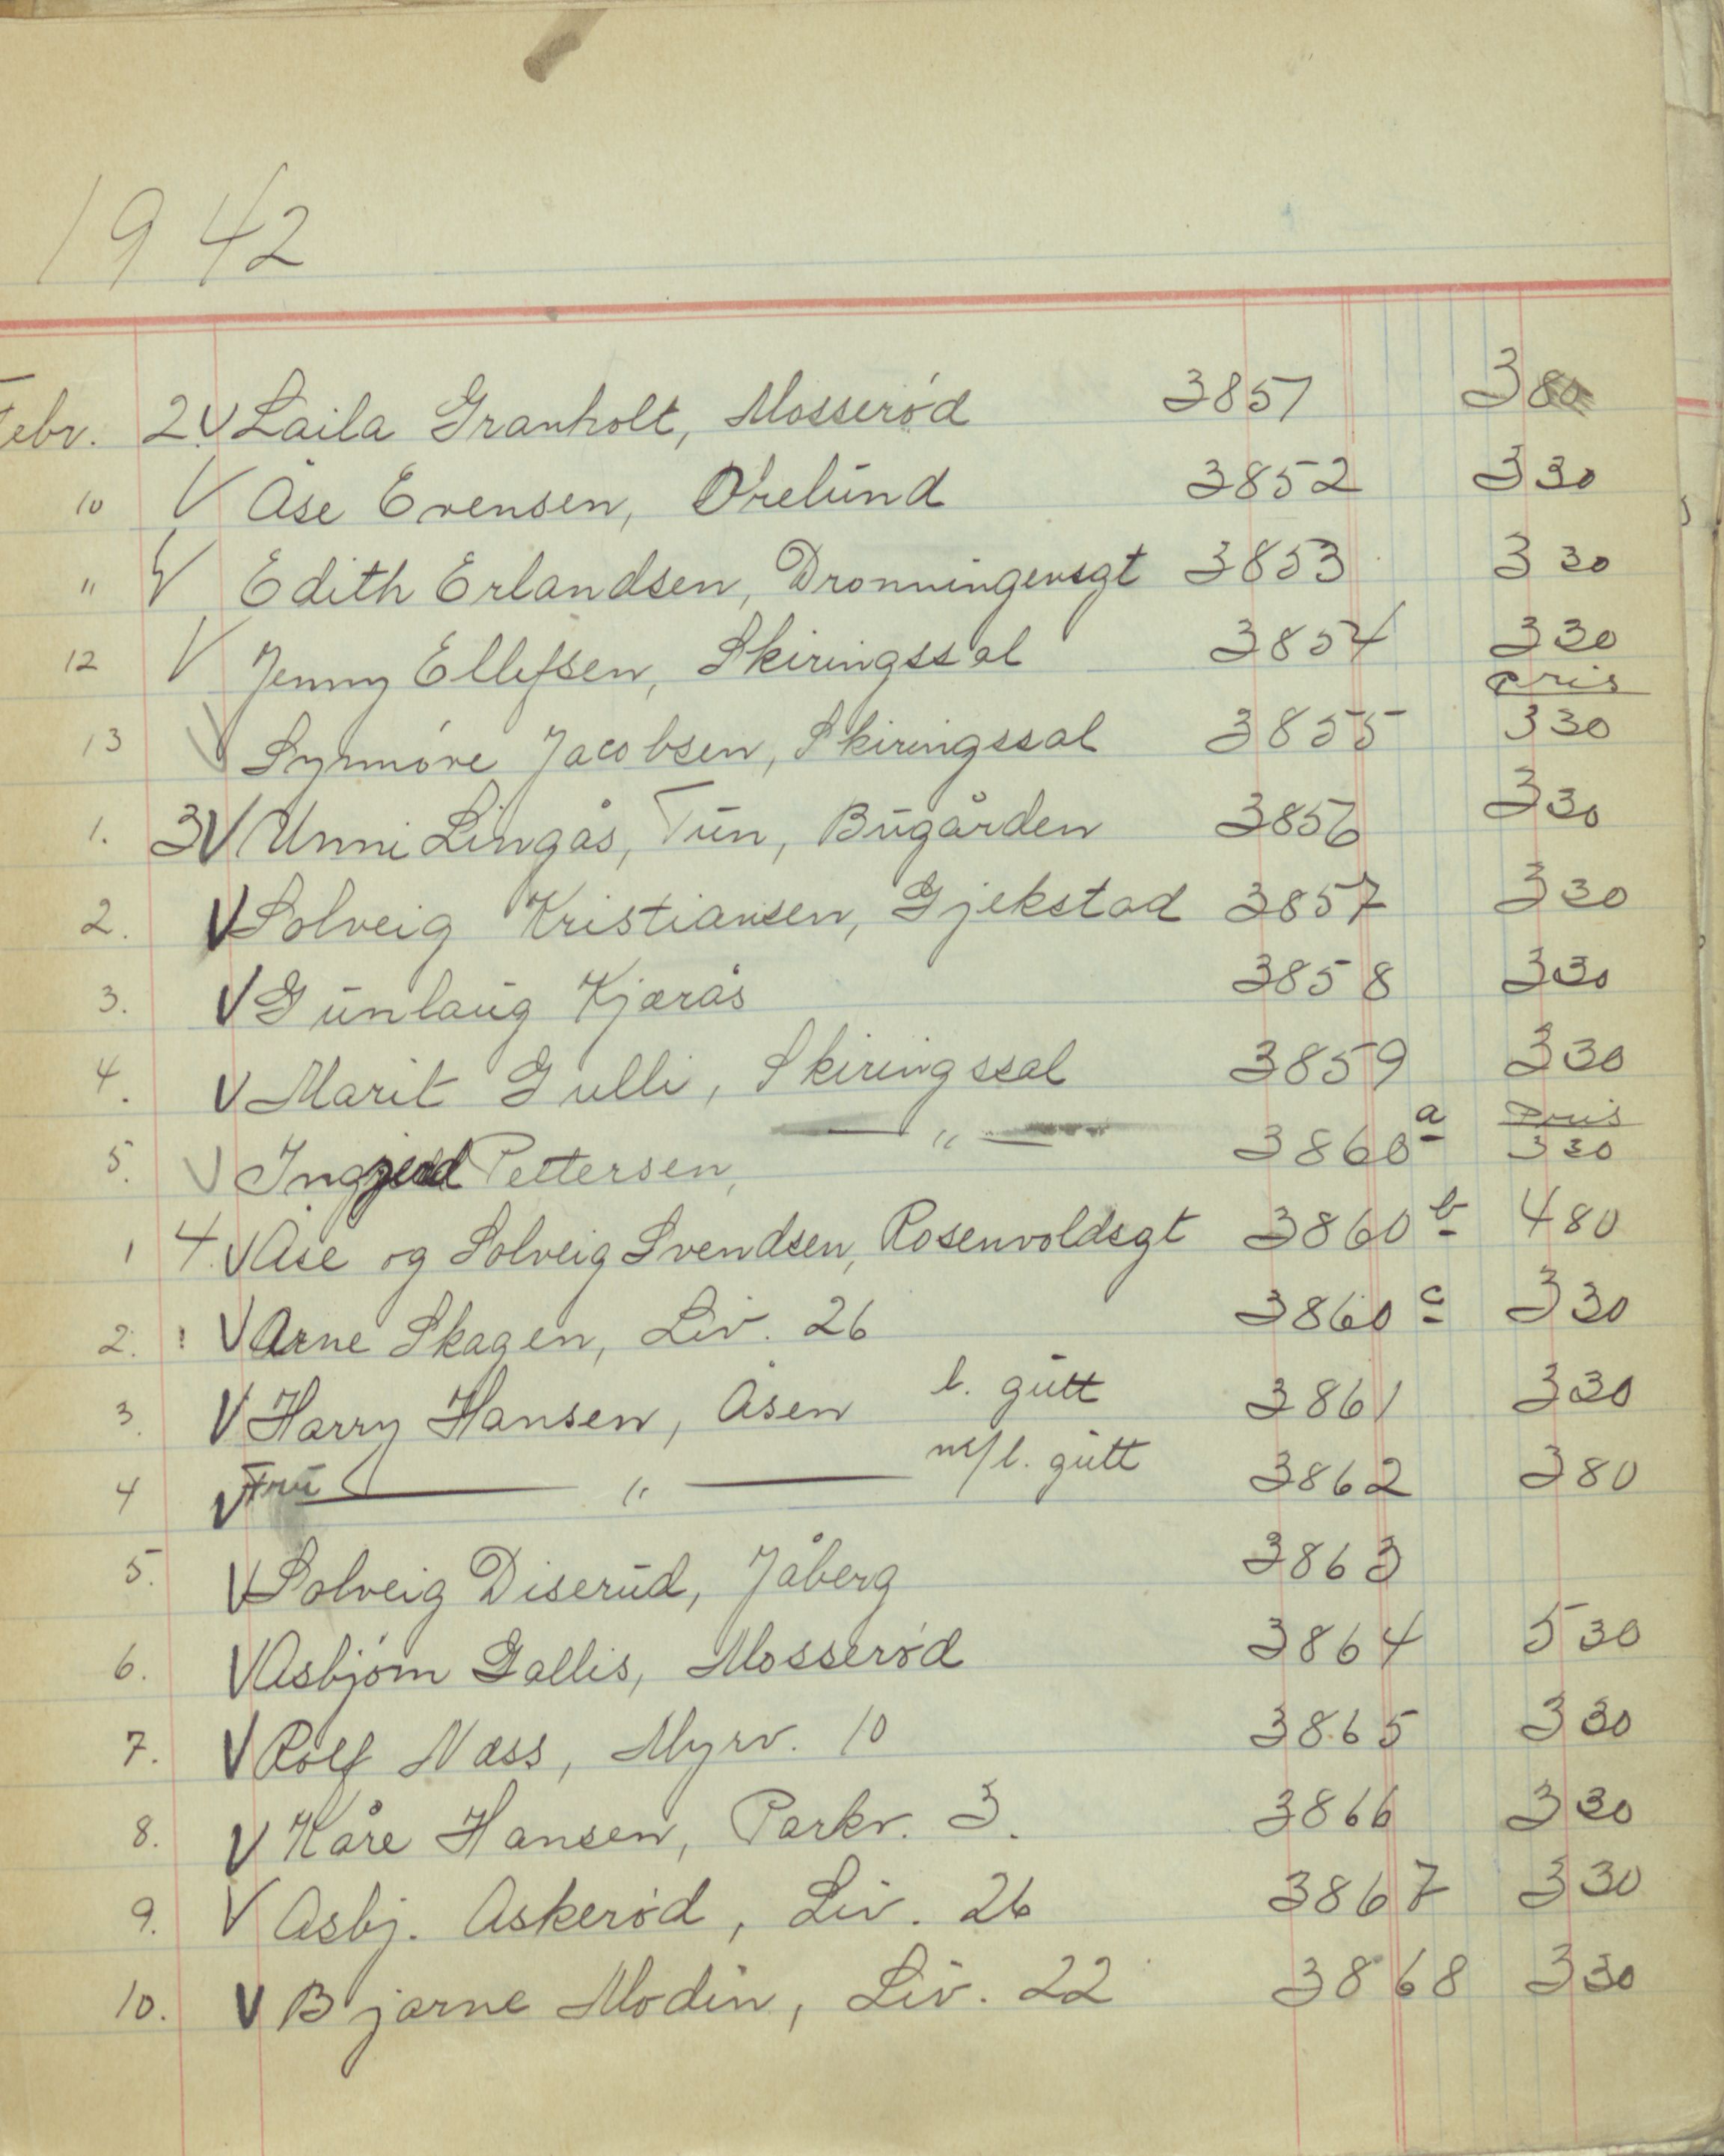 1942
Febr. 2. V Laila Granholt, Mosserød 3851 380
10 V Åse Evensen, Orelünd 3852 330
" V Edith Erlandsen, Dronningensgt 3853 330
12 V Jenny Ellefsen, Skiringssal 3854 330
pris
13 V Synnøve Jacobsen, Skiringssal 3855 330
1. 3 V Unni Lingås, Tūn, Būgården 3856 330
2. V Solveig Kristiansen, Gjekstad 3857 330
3. V Gūnlaūg Kjærås 3858 330
4. V Marit Gulli, Skiringssal 3859 330
Pris
5. V Ingjerd Pettersen, — " — 3860 a 330
1 4. V Åse og Solveig Svendsen, Rosenvoldsgt 3860 b 480
2. : V Arne Skagen, Liv. 26 3860 c 330
3. V Harry Hansen, Åsen l. gūtt 3861 330
4 V Frū — " — m/l. gūtt 3862 380
5. V Solveig Diserūd, Jåberg 3863
6. V Asbjørn Gallis, Mosserød 3864 530
7. V Rolf Næss, Myrv. 10 3865 330
8. V Kåre Hansen, Parkv. 3. 3866 330
9. V Asbj. Askerød, Liv. 26 3867 330
10. V Bjarne Modin, Liv. 22 3868 330